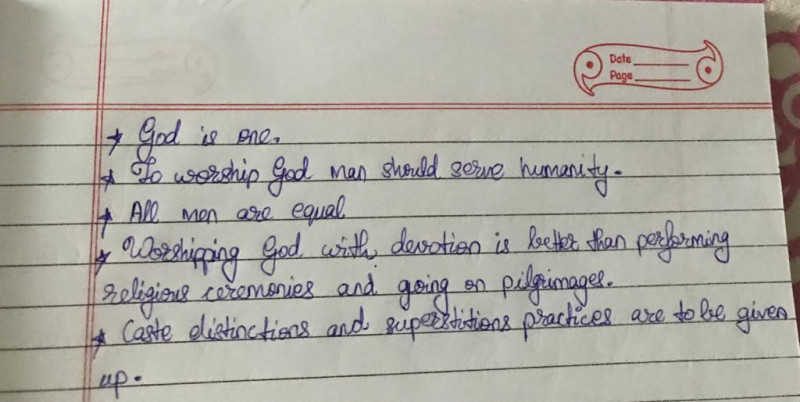 Date
Page
* God is one.
* To worship God man should serve humanity.
* All men are equal
* Worshipping God with devotion is better than performing
religious ceremonies and going on pilgrimages.
* Caste distinctions and superstitions practices are to be given
up.